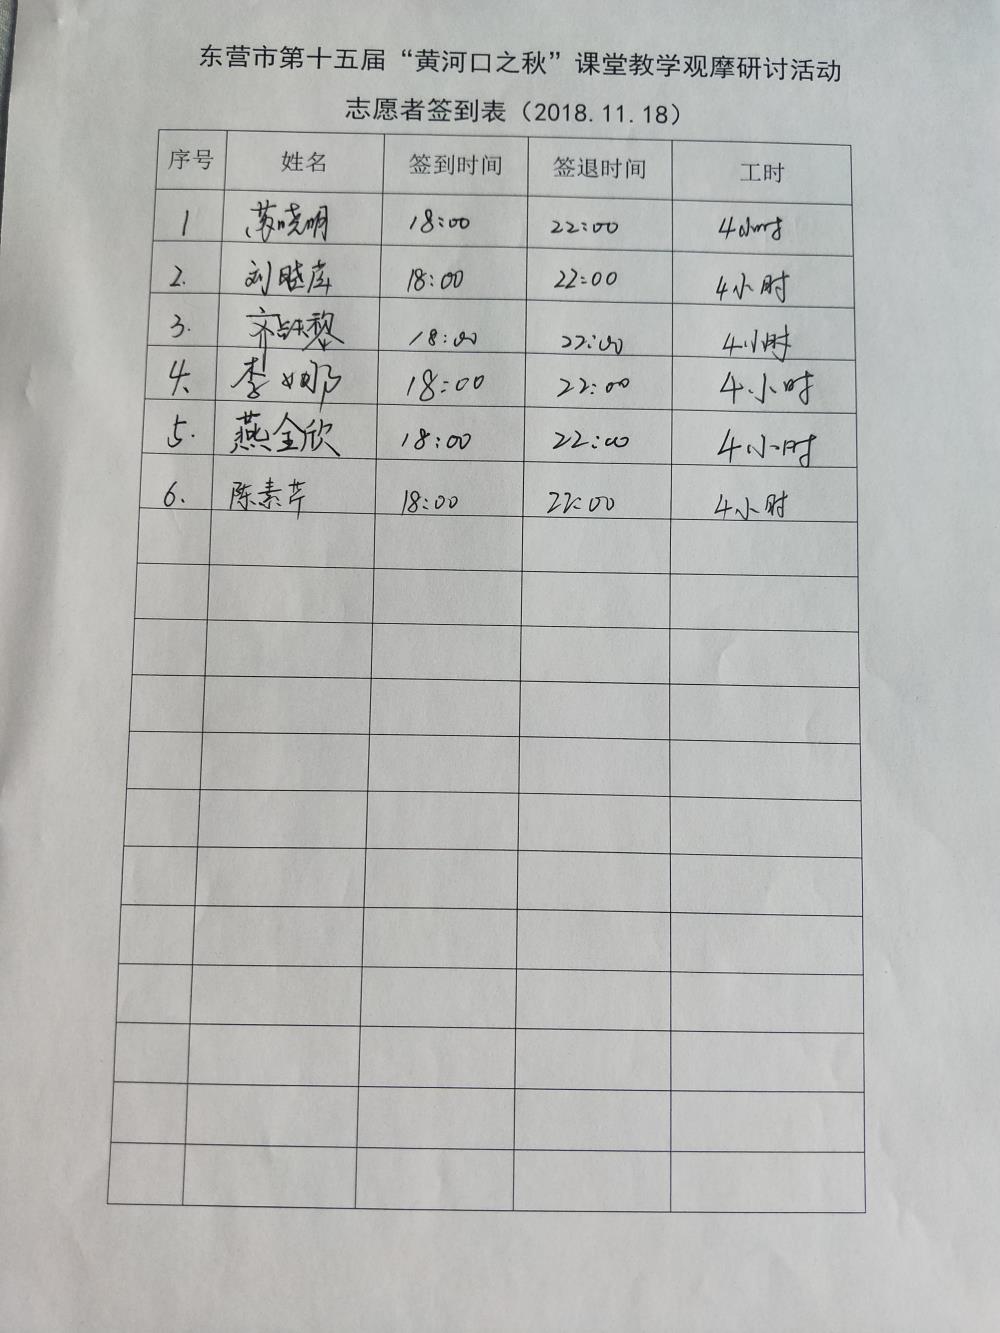 东营市第十五届“黄河口之秋”课堂教学观摩研讨活动
志愿者签到表（2018.11.18）
序号 姓名 签到时间 签退时间 工时
1 苏晓明 18:00 22:00 4小时
2. 刘 18:00 22:00 4小时
3. 18:00 22:00 4小时
4. 李娜 18:00 22:00 4.小时
5. 燕全欣 18:00 22:00 4小时
6. 陈素芹 18:00 22:00 4小时